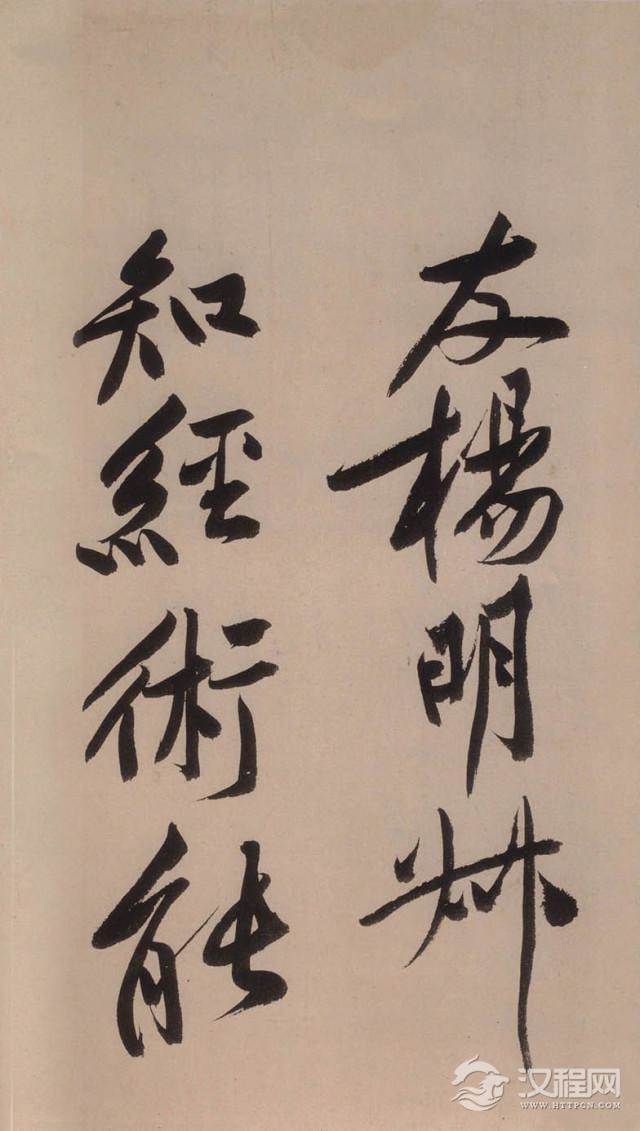 友楊明叔
知經術能
汉程网
WWW.HTTPCN.COM